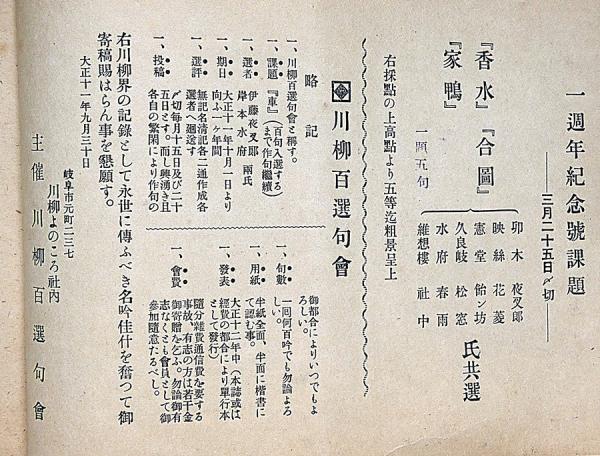 一週年紀念號課題
――三月二十五日〆切――
『香水』『合圖』
『家鴨』
一題五句
卯木 夜叉郎
映絲 花菱
憲堂 飴ン坊
久良岐 松窓
水府 春雨
維想樓 社中
氏共選
右採點の上高點より五等迄粗景呈上
川柳百選句會
略記
一、川柳百選句會と稱す。
一、課題 『車』(百句入選する
まで作句繼續)
一、選者 伊藤夜叉郎
岸本水府 兩氏
一、期日 大正十一年十月一日より
向ふ一ヶ年間
一、選評 無記名清記各二通作成各
選者へ廻送す
一、投稿 〆切毎月十五日及び二十
五日とす。而し興湧き且
各自の繁閑により作句の
御都合によりいつでもよ
ろしい。
一、句數 一回何百吟でも勿論よろ
しい。
一、用紙 半紙全面、半面に楷書に
て認む事。
一、發表 大正十二年中(本誌或は
經費の都合により單行本
として發行)
一、會費 隨分雜費通信費を要する
事故、有志の方は若干金
御寄贈を乞ふ。勿論御有
志なくとも會員として御
參加隨意たるべし。
右川柳界の記錄として永世に傳ふべき名吟佳什を奮つて御
寄稿賜はらん事を懇願す。
大正十一年九月三十日
岐阜市元町二三七
川柳よのころ社內
主催 川柳百選句會